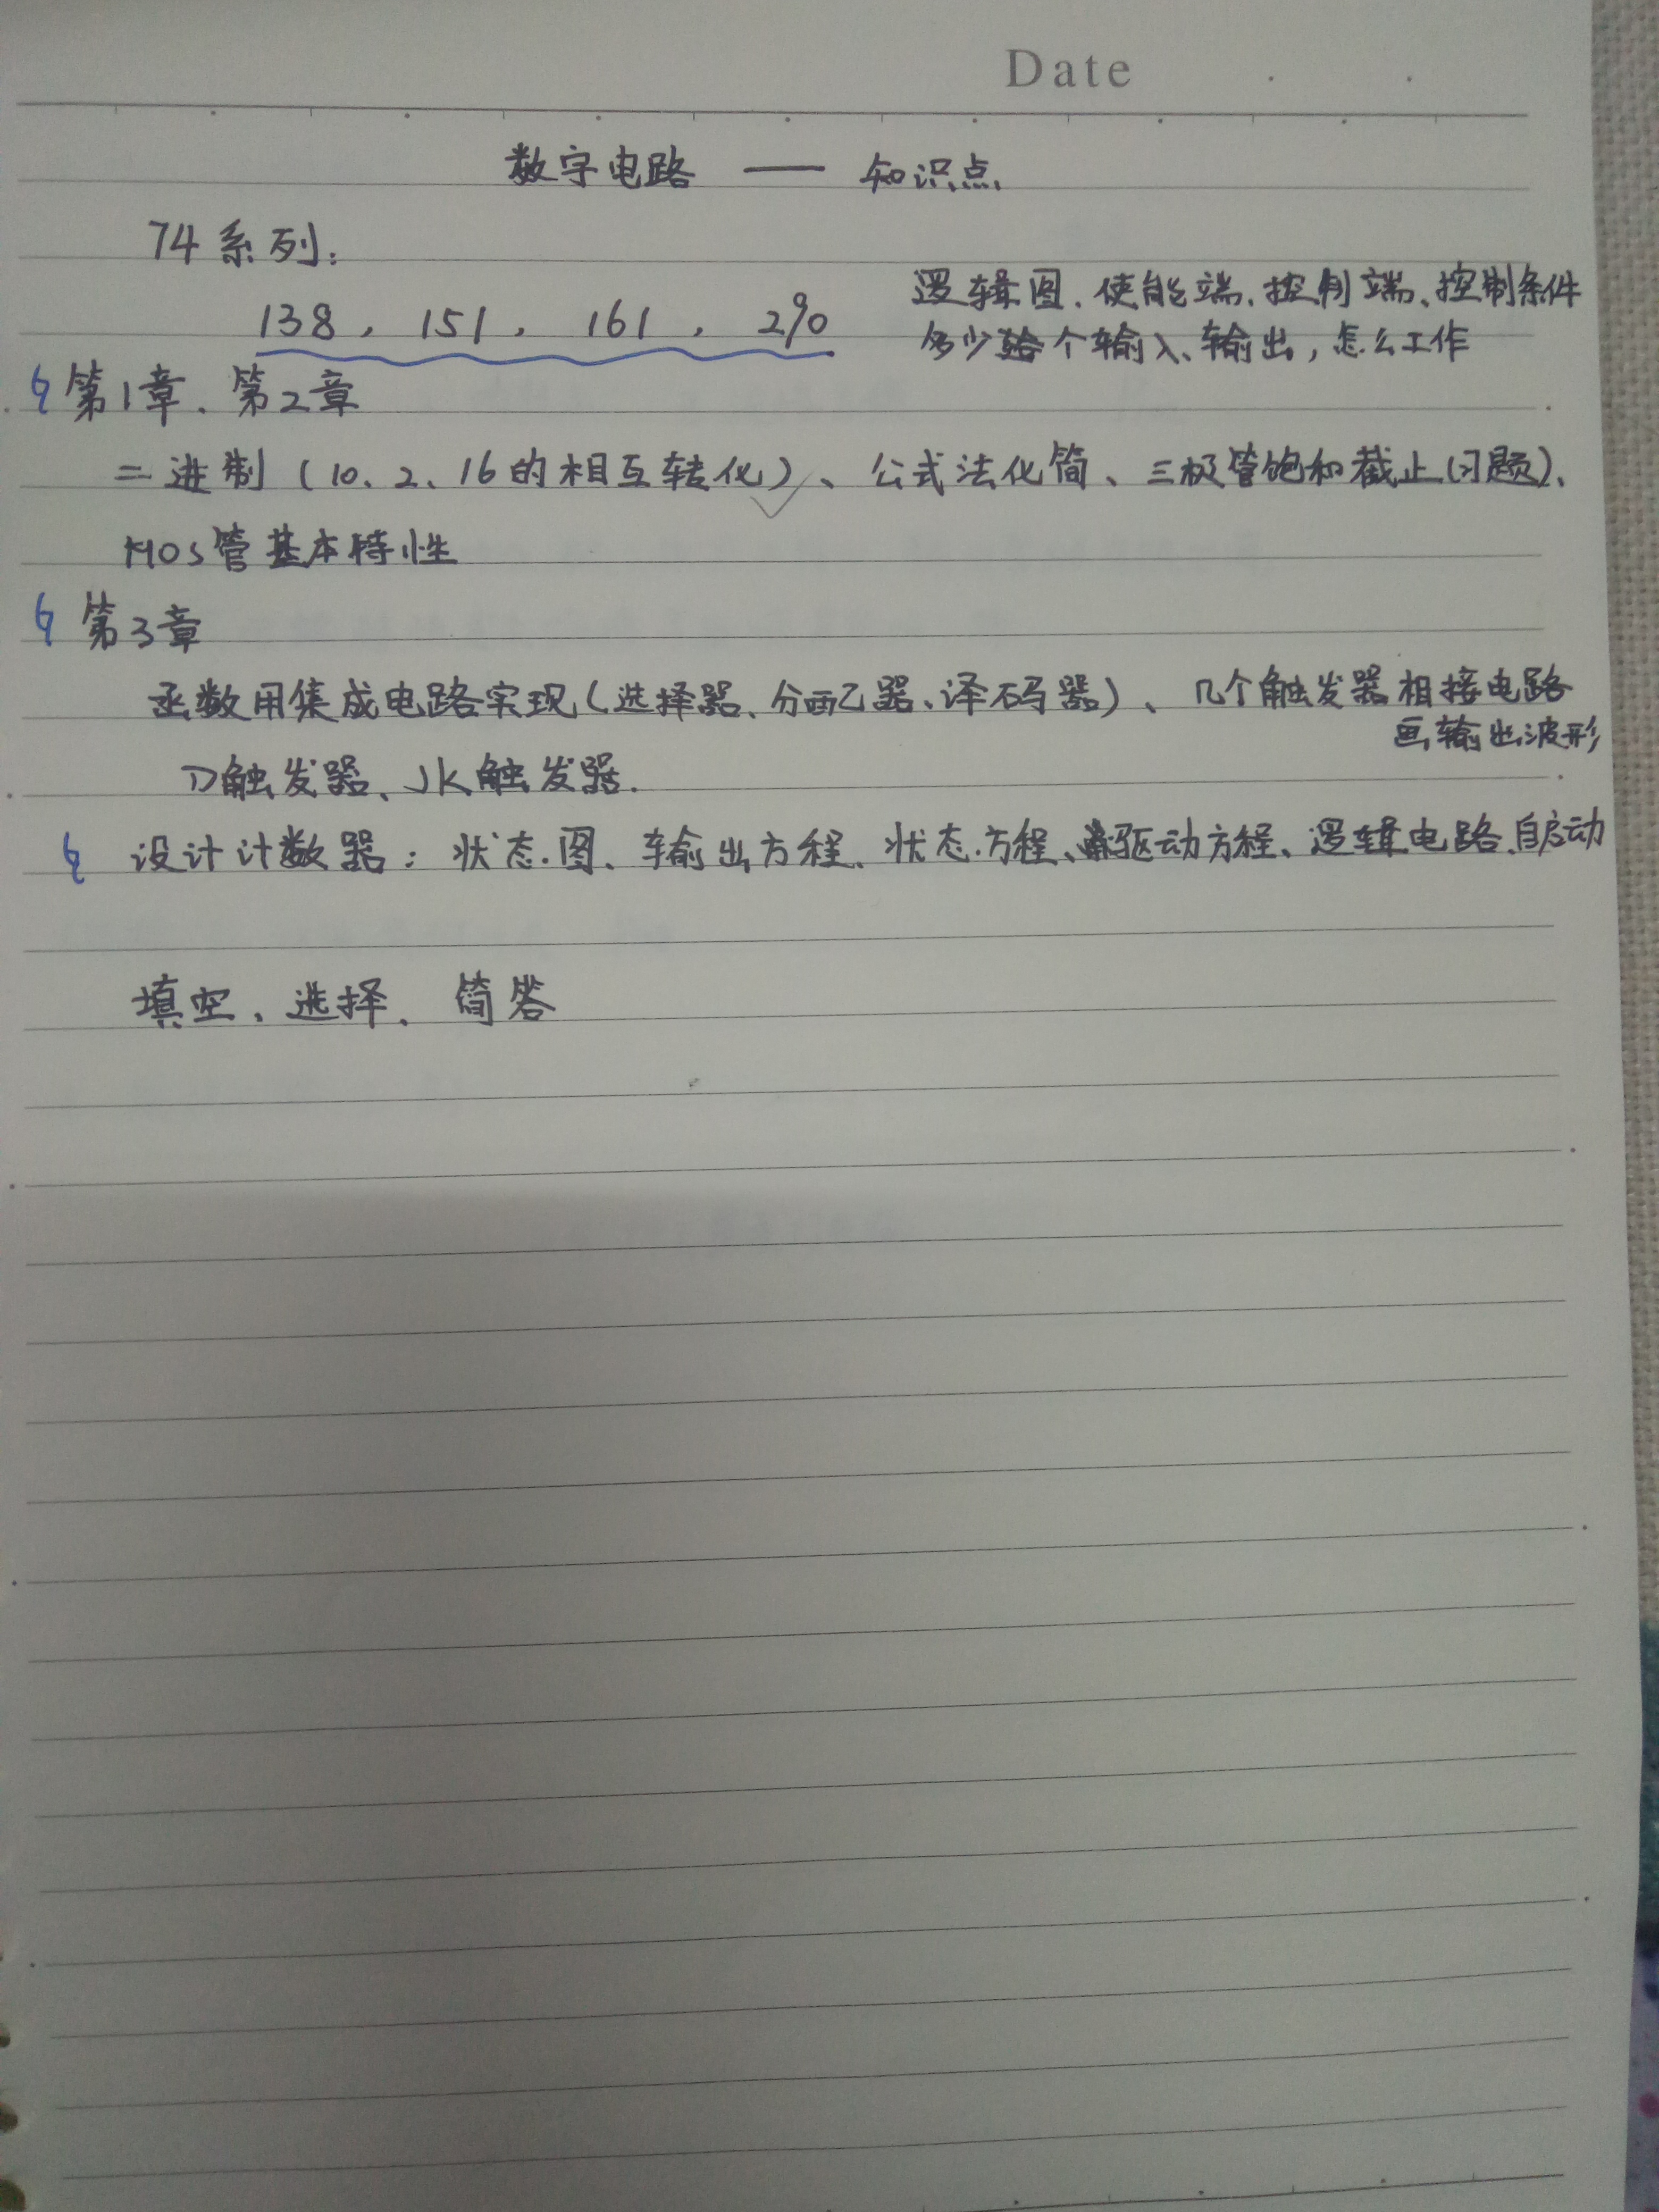 Date
数字电路 — 知识点
74系列:
138, 151, 161, 290
逻辑图、使能端、控制端、控制条件
多少个输入、输出,怎么工作
第1章、第2章
二进制(10、2、16的相互转化)、公式法化简、三极管饱和截止(习题)、
MOS管基本特性
第3章
函数用集成电路实现(选择器、分配器、译码器)、几个触发器相接电路
画输出波形
D触发器、JK触发器.
设计计数器:状态图、输出方程、状态方程、驱动方程、逻辑电路、自启动
填空、选择、简答